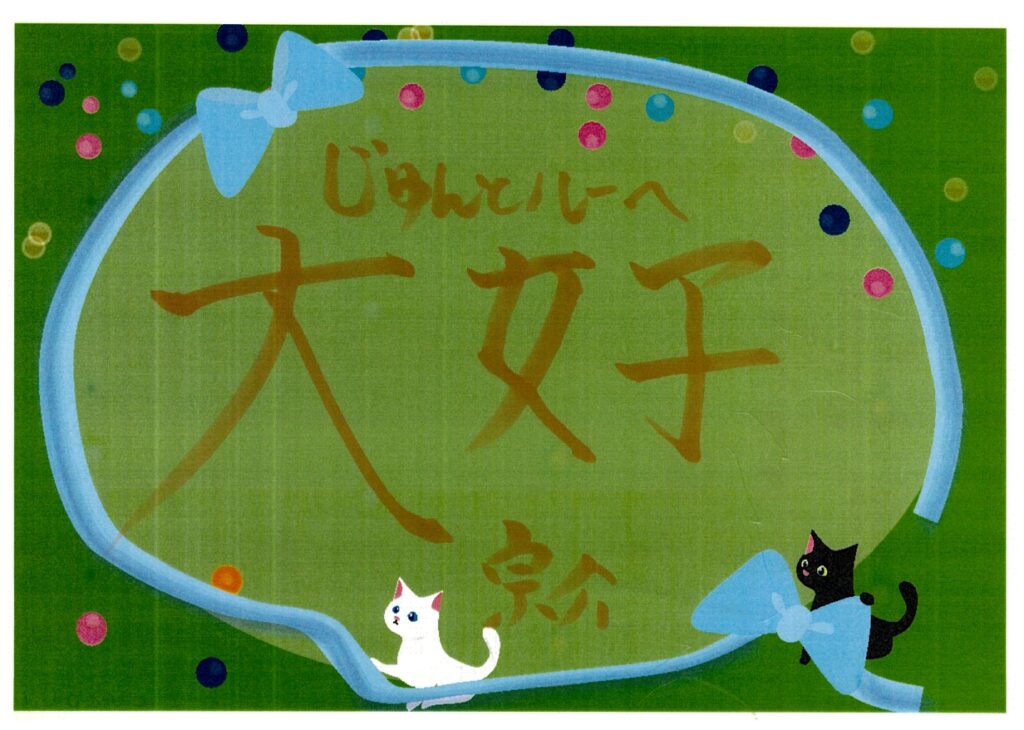 じゅんとルーへ
大好
宗介